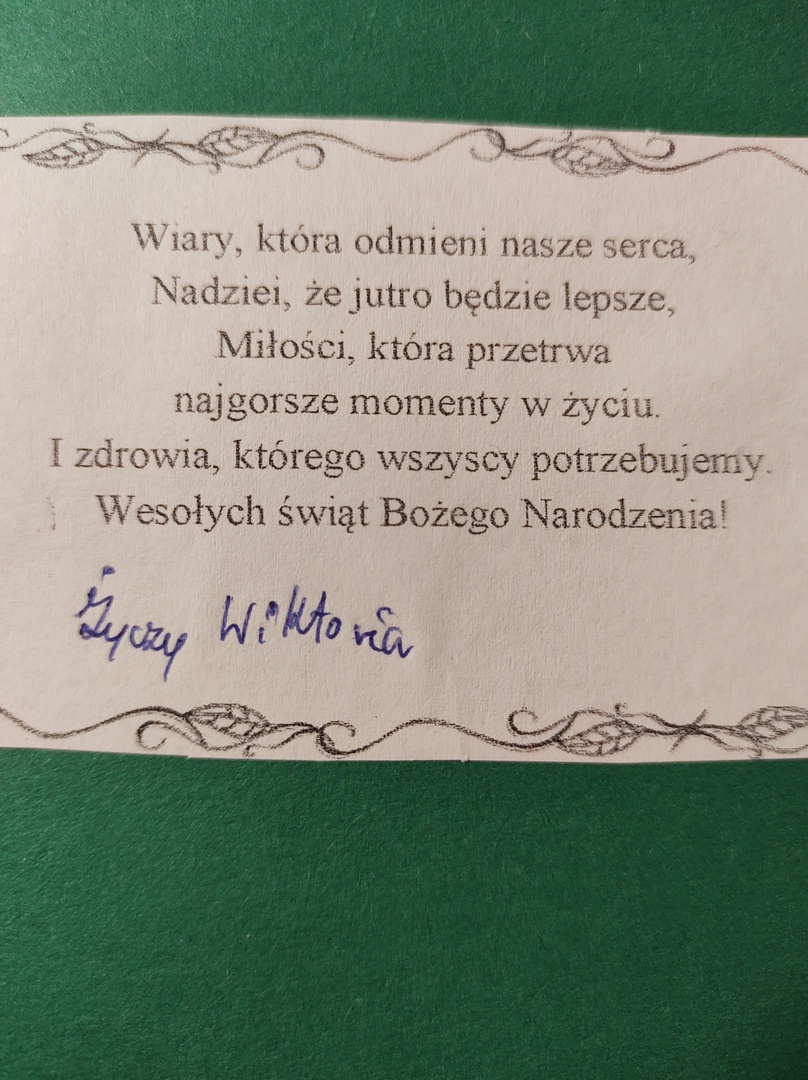 Wiary, która odmieni nasze serca,
Nadziei, że jutro będzie lepsze,
Miłości, która przetrwa
najgorsze momenty w życiu.
I zdrowia, którego wszyscy potrzebujemy.
Wesołych świąt Bożego Narodzenia!
Życzy Wiktoria